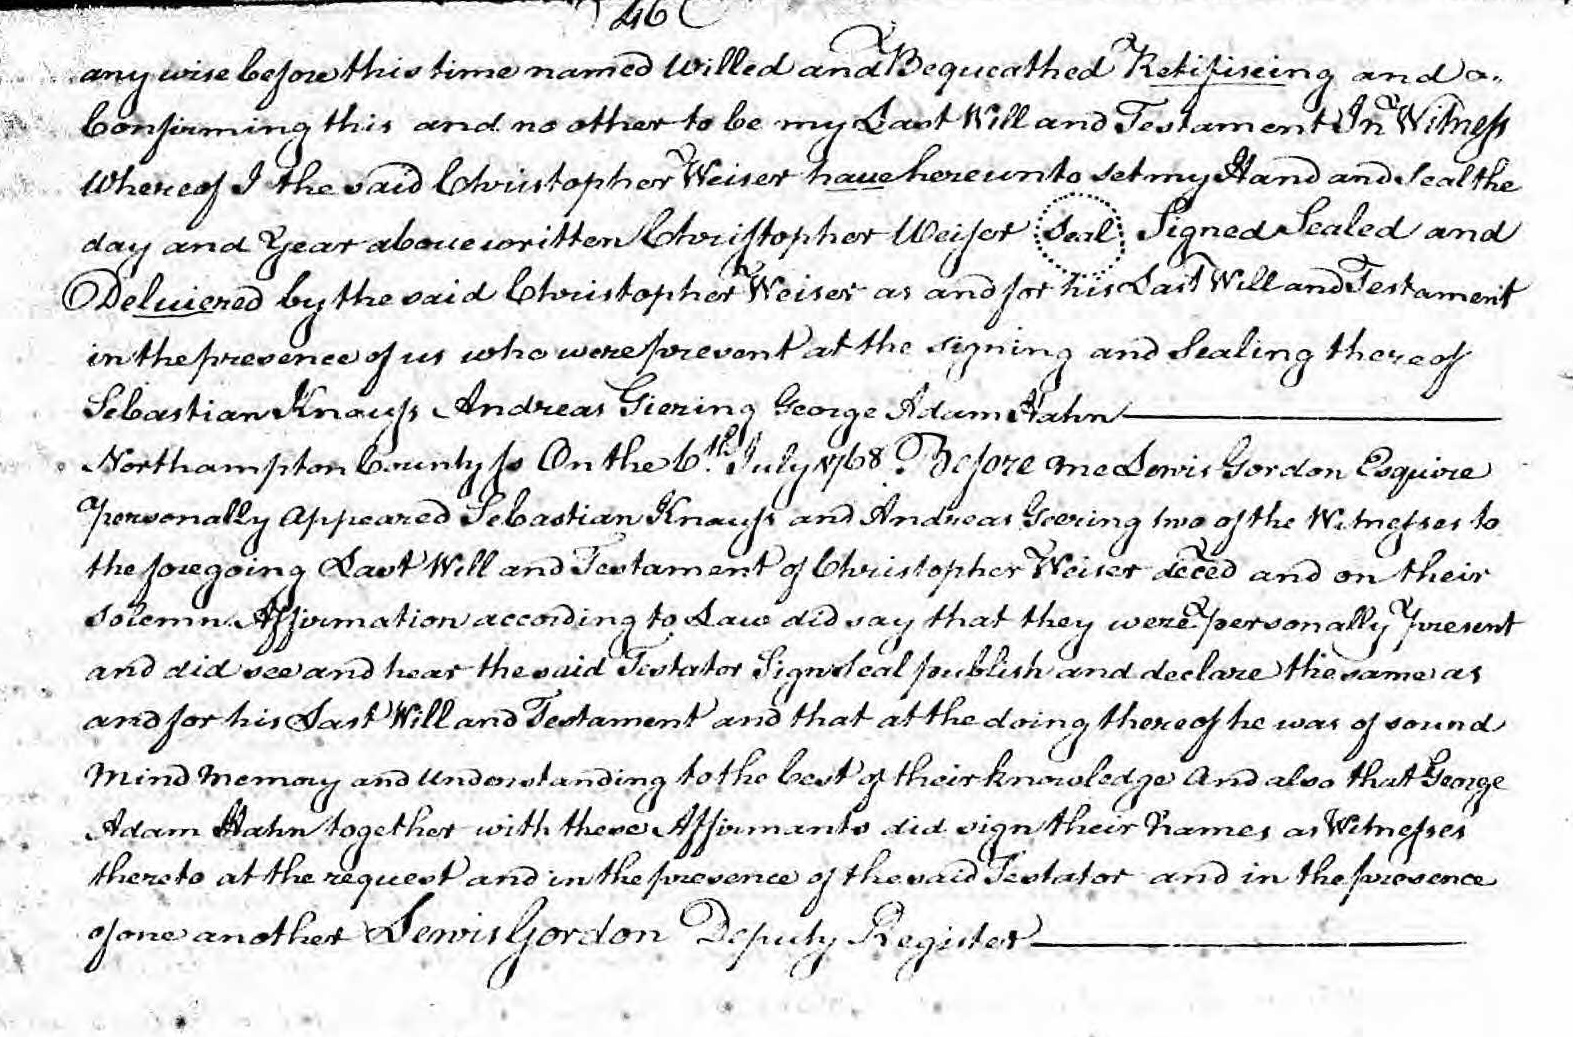 46
any wise before this time named Willed and Bequeathed Retifiseing and
Confirming this and no other to be my Last Will and Testament In Witness
Whereof I the said Christopher Weiser have hereunto set my Hand and Seal the
day and Year above written Christopher Weiser Seal Signed Sealed and
Deluiered by the said Christopher Weiser as and for his Last Will and Testament
in the presence of us who were present at the signing and Sealing thereof
Sebastian Knauss Andreas Giering George Adam Hahn
Northampton County ss On the 6th July 1768. Before me Lewis Gordon Esquire
personally Appeared Sebastian Knauss and Andreas Geering two of the Witnesses to
the foregoing Last Will and Testament of Christopher Weiser deced and on their
solemn Affirmation according to Law did say that they were personally present
and did see and hear the said Testator Sign Seal publish and declare the same as
and for his Last Will and Testament and that at the doing thereof he was of sound
Mind Memory and Understanding to the best of their knowledge And also that George
Adam Hahn together with these Affirmants did sign their Names as Witnesses
thereto at the request and in the presence of the said Testator and in the presence
of one another Lewis Gordon Deputy Register